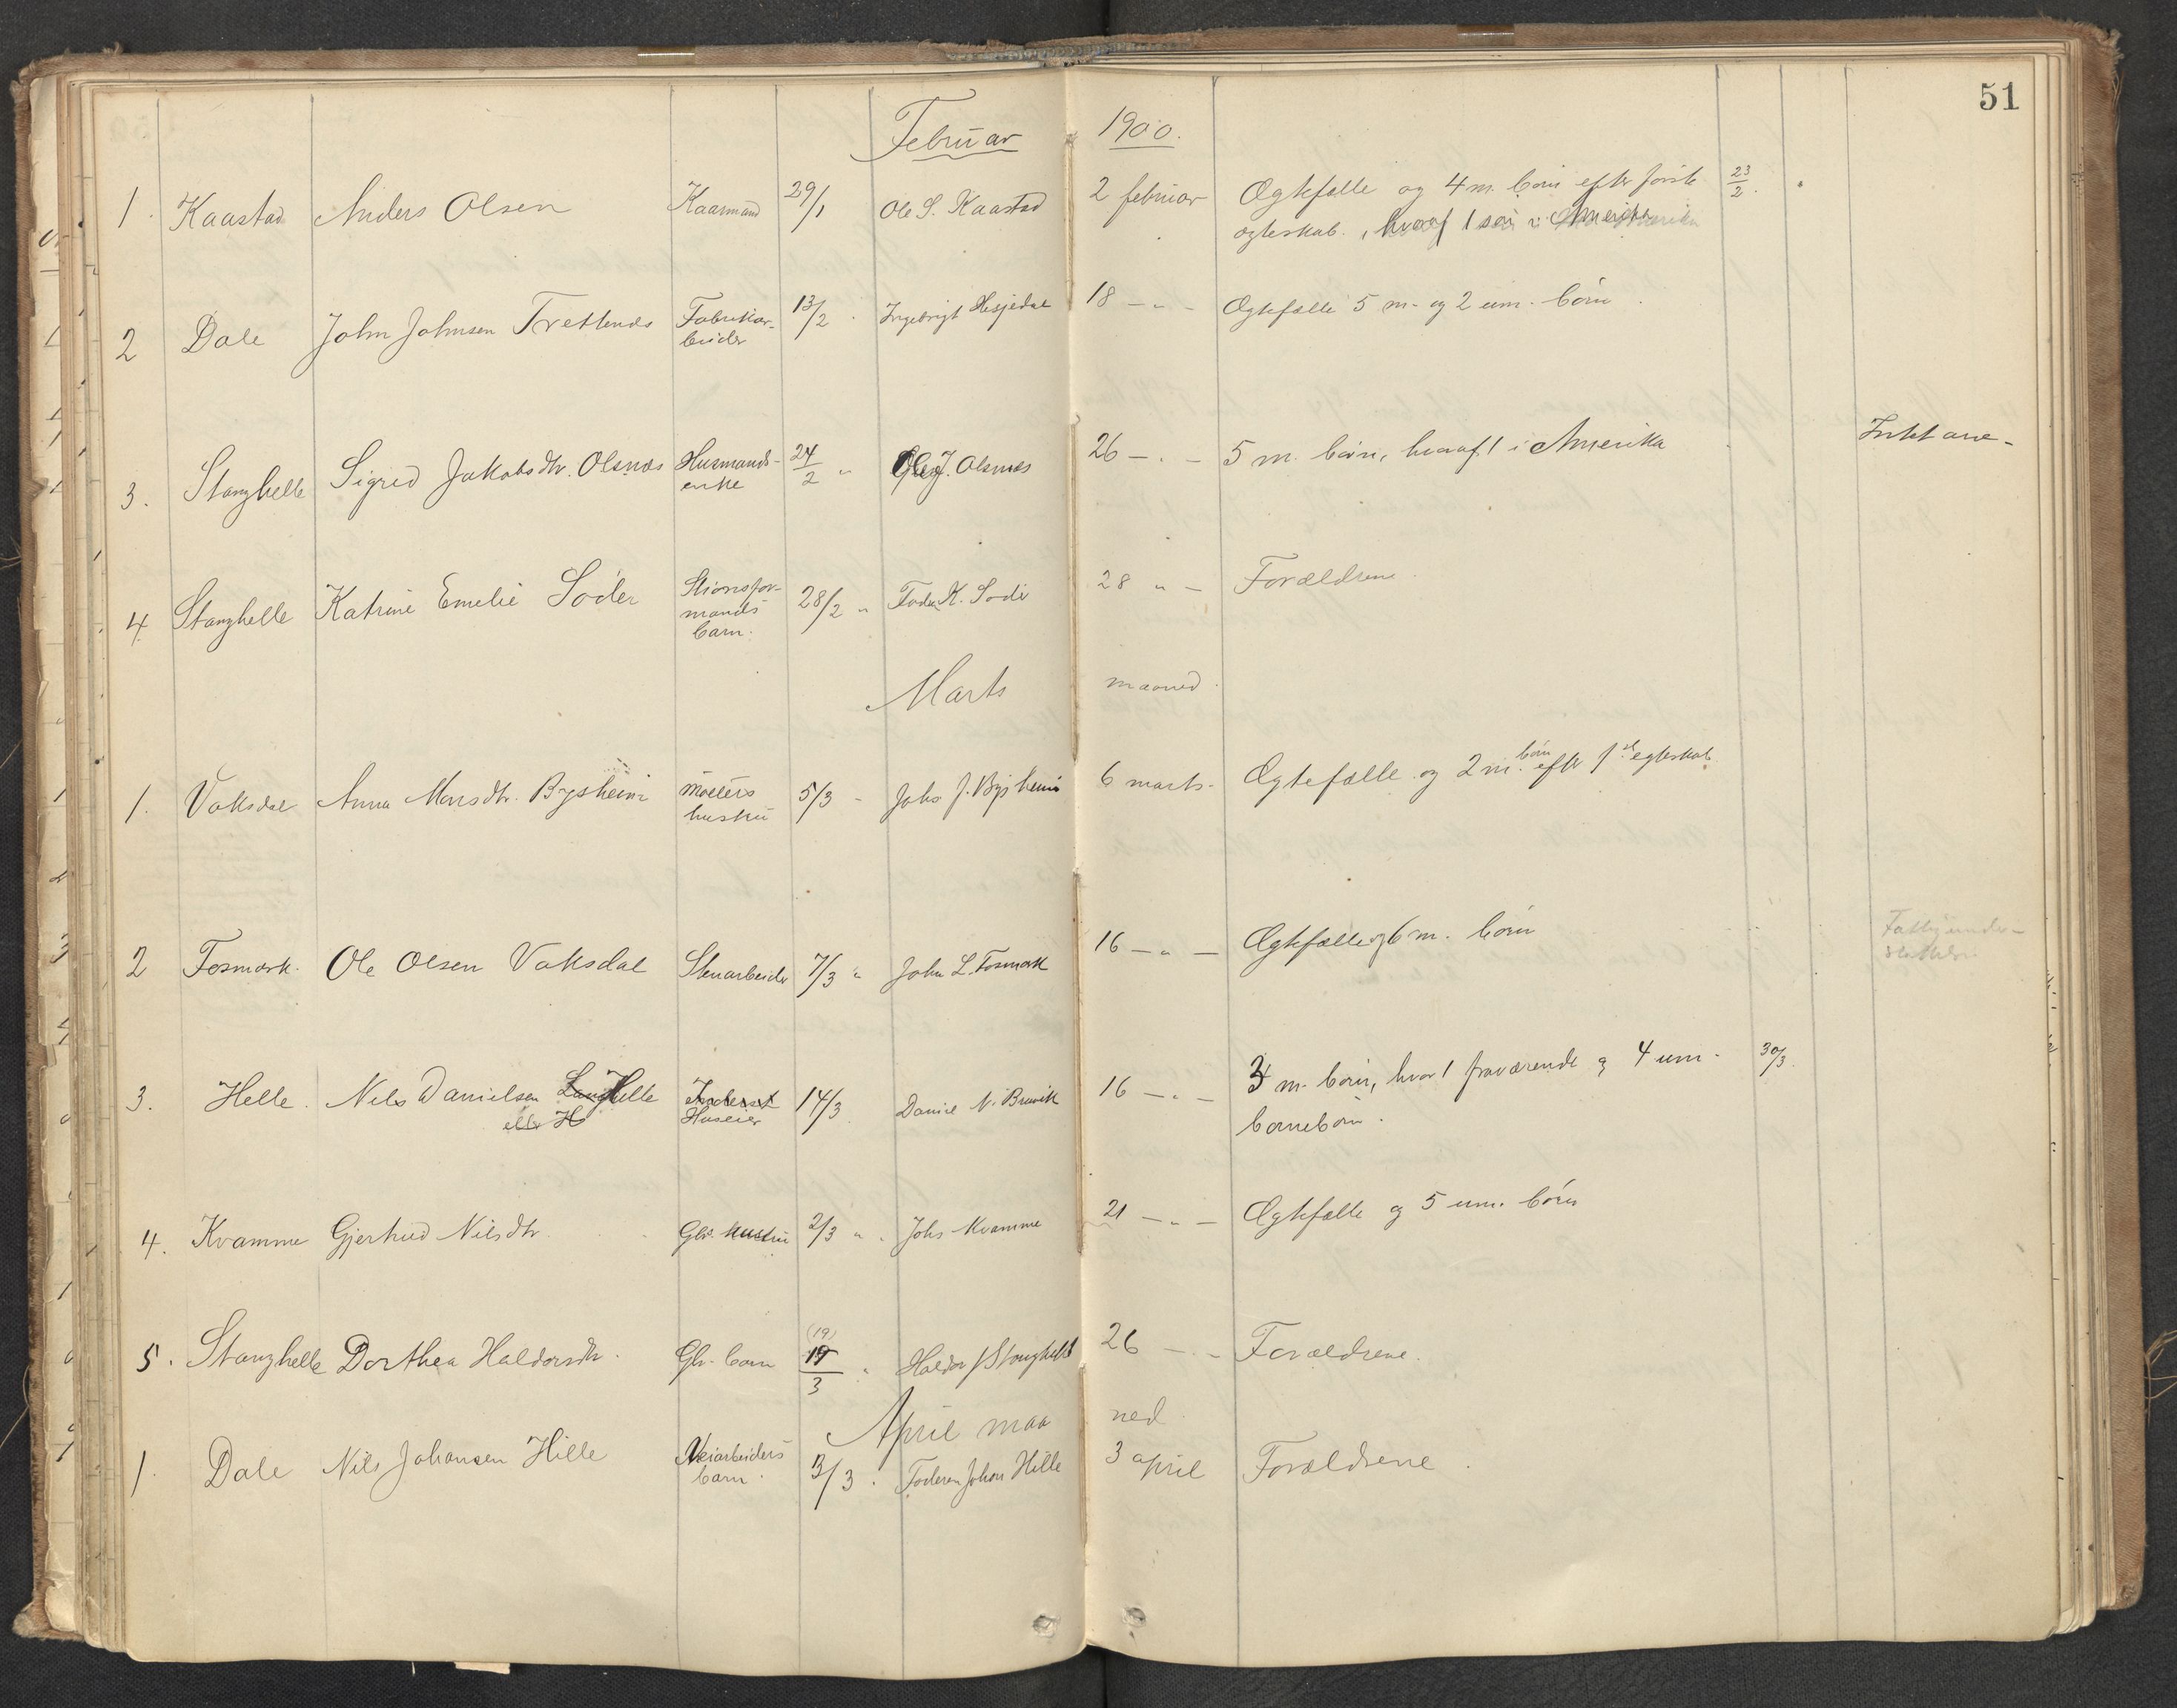 51
Februar 1900.
1. Kaastad Anders Olsen Kaarmand 29/1 Ole S. Kaastad 2 februar Ægtefælle og 4 m. börn efter förste 23/2.
ægteskab, hvoraf 1 sön i Amerika
2 Dale John Johnsen Trettenes Fabrikar- 13/2 Ingebrigt Hesjedal 18 - " - Ægtefælle 5 m. og 2 um. börn.
beider
3. Stanghelle Sigred Jakobsdtr. Olsnæs Husmands- 24/2 " Ole J. Olsnæs 26 - " - 5 m. börn, hvoraf 1 i Amerika Intet
enke
4. Stanghelle Katrine Emelie Söder 28/2 " K. Söder 28 " - Forældrene.
mands
barn.
Marts maaned.
1. Vaksdal Anna Monsdtr. Bysheim 5/3 - Johs J. Bysheim 6 marts - Ægtefælle og 2 m. börn efter 1ste egteskab.
hustru
2 Fosmark. Ole Olsen Vaksdal Stenarbeider 7/3 " John L. Fosmark 16 - " - Ægtefælle og 6 m. börn
3. Helle. Nils Danielsen Helle Inderst 14/3 Daniel N. Bruvik 16 - " - 3 m. börn, hvor 1 fraværende og 4 um. 30/3.
eller H Huseier börnebörn.
4. Kvamme Gjertrud Nilsdtr. Gbr. hustru 2/3 " Johs Kvamme 21 - " - Ægtefælle og 5 um. börn
5. Stanghelle Dorthea Haldorsdtr. Gbr. barn (19) 19/3 " Haldor J Stanghelle 26 - " - Forældrene.
April maaned
1. Dale Nils Johansen Hille Veiarbeiders /3 " Faderen Johan Hille 3 april Forældrene.
barn.